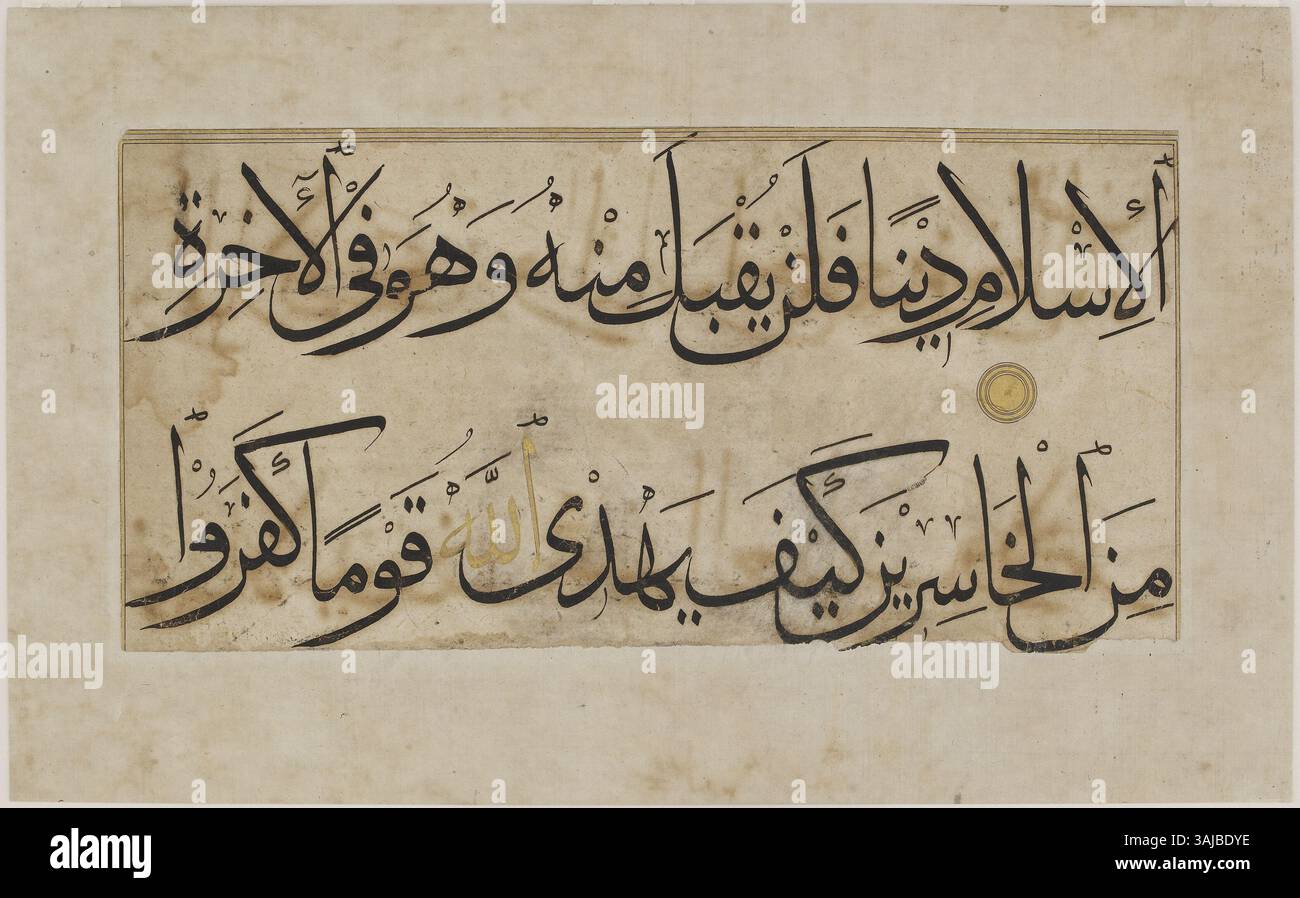 اَلْإِسْلَامِ دِيْنًا فَلَنْ يُقْبَلَ مِنْهُ وَهُوَ فِى الْأٰخِرَةِ
مِنَ الْخَاسِرِيْنَ كَيْفَ يَهْدِى اللّٰهُ قَوْمًا كَفَرُوْا
alamy
Image ID: 3AJBDYE
www.alamy.com